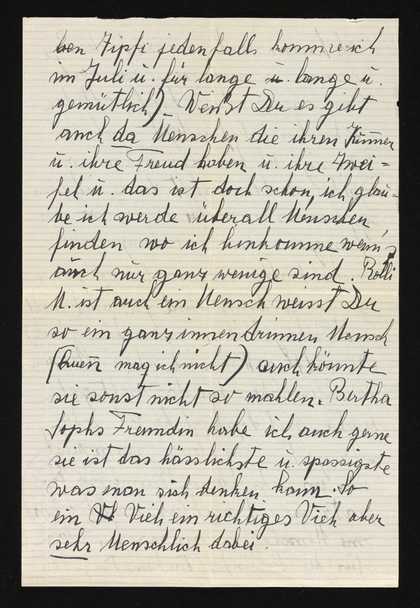 ben Zipfi jedenfalls komme ich
im Juli u. für lange u. lange u.
gemütlich) Weisst Du es gibt
auch da Menschen die ihren Kummer
u. ihre Freud haben u. ihre Zwei=
fel u. das ist doch schon, ich glau=
be ich werde überall Menschen
finden wo ich hinkomme wenn's
auch nur ganz wenige sind. Rolli
M. ist auch ein Mensch weisst Du
so ein ganz innendrinnen Mensch
( mag ich nicht) auch könnte
sie sonst nicht so mahlen. Bertha
Sophs Freundin habe ich auch gerne
sie ist das hässlichste u. spassigste
was man sich denken kann. So
ein Vieh ein richtiges Vieh aber
sehr Menschlich dabei.